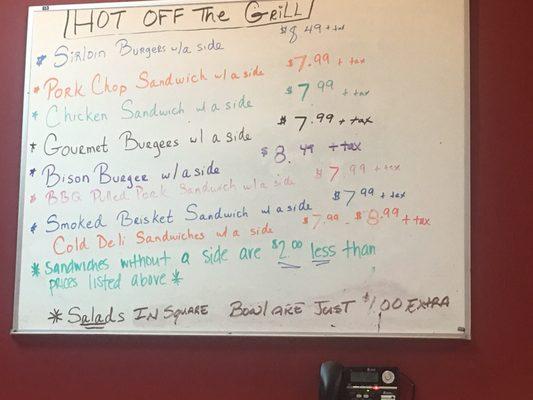 HOT OFF The GRILL
* Sirloin Burgers w/a side $8.49 + tax
* Pork Chop Sandwich w/ a side $7.99 + tax
* Chicken Sandwich w/ a side $7.99 + tax
* Gourmet Burgers w/ a side $7.99 + tax
* Bison Burger w/a side $8.49 + tax
* BBQ Pulled Pork Sandwich w/ a side $7.99 + tax
* Smoked Brisket Sandwich w/ a side $7.99 + tax
Cold Deli Sandwiches w/ a side $7.99 - $8.99 + tax
* Sandwiches without a side are $2.00 less than
prices listed above *
* Salads IN SQUARE Bowl ARE JUST $1.00 EXTRA